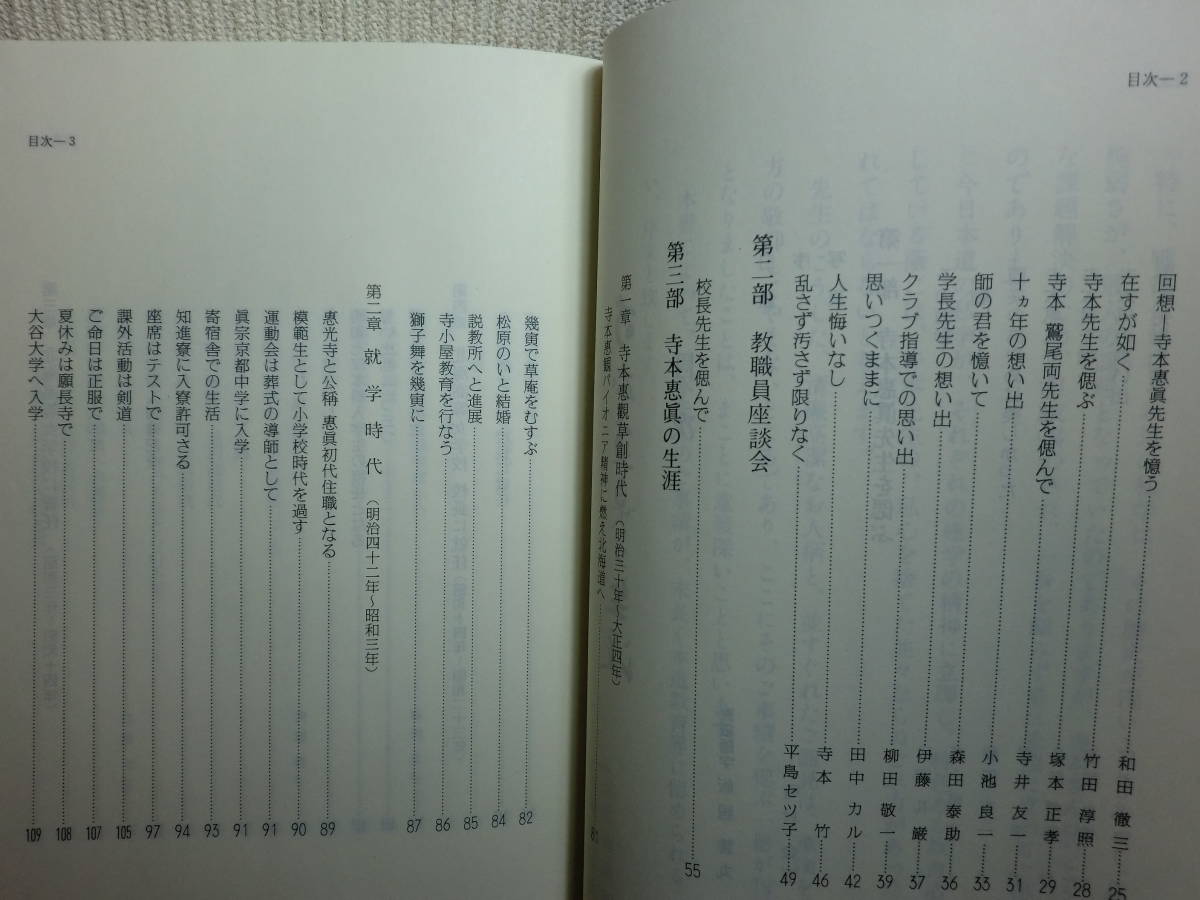 目次―2
回想―寺本惠眞先生を憶う……和田徹三 25
在すが如く……竹田淳照 28
寺本先生を偲ぶ……塚本正孝 29
寺本 鷲尾両先生を偲んで……寺井友一 31
十ヵ年の想い出……小池良一 33
師の君を憶いて……森田泰助 36
学長先生の想い出……伊藤 巌 37
クラブ指導での思い出……柳田敬一 39
思いつくままに……田中カル 42
人生悔いなし……寺本 竹 46
乱さず汚さず限りなく……平島セツ子 49
第二部 教職員座談会
校長先生を偲んで……55
第三部 寺本惠眞の生涯
第一章 寺本惠観草創時代（明治三十年～大正四年）
寺本惠観パイオニア精神に燃え北海道へ……81
目次―3
幾寅で草庵をむすぶ……82
松原のいと結婚……84
説教所へと進展……85
寺小屋教育を行なう……86
獅子舞を幾寅に……87
第二章 就学時代（明治四十二年～昭和三年）
惠光寺と公稱 惠眞初代住職となる……89
模範生として小学校時代を過す……90
運動会は葬式の導師として……91
眞宗京都中学に入学……91
寄宿舎での生活……93
知進寮に入寮許可さる……94
座席はテストで……97
課外活動は剣道……105
ご命日は正服で……107
夏休みは願長寺で……108
大谷大学へ入学……109